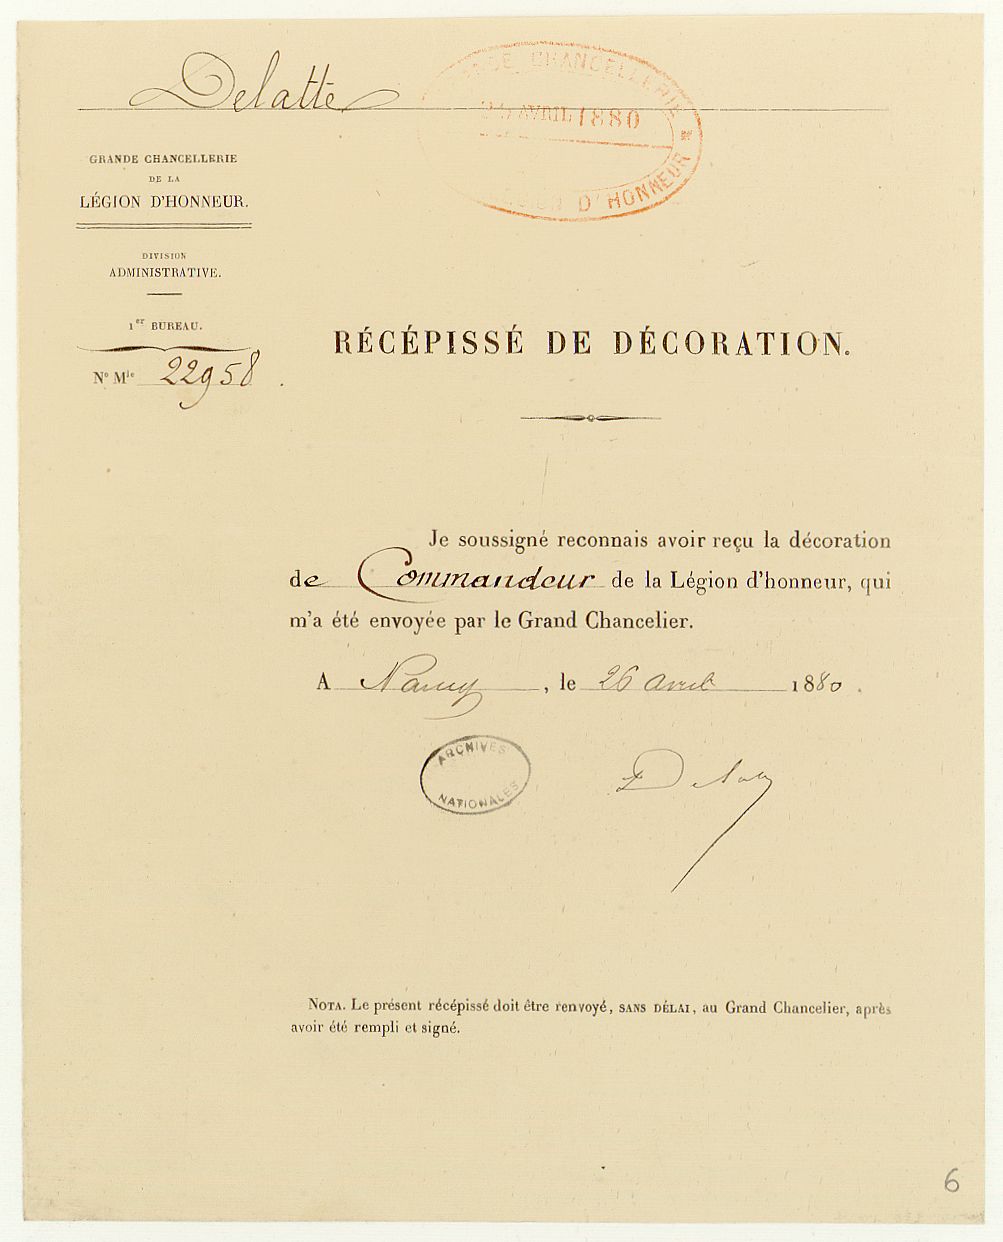 Delatte
GRANDE CHANCELLERIE
AVRIL 1880
LÉGION D'HONNEUR
GRANDE CHANCELLERIE
DE LA
LÉGION D'HONNEUR.
DIVISION
ADMINISTRATIVE.
1er BUREAU.
N° Mle 22958.
RÉCÉPISSÉ DE DÉCORATION.
Je soussigné reconnais avoir reçu la décoration
de Commandeur de la Légion d'honneur, qui
m'a été envoyée par le Grand Chancelier.
A Nancy, le 26 avril 1880.
ARCHIVES
NATIONALES
NOTA. Le présent récépissé doit être renvoyé, SANS DÉLAI, au Grand Chancelier, après
avoir été rempli et signé.
6